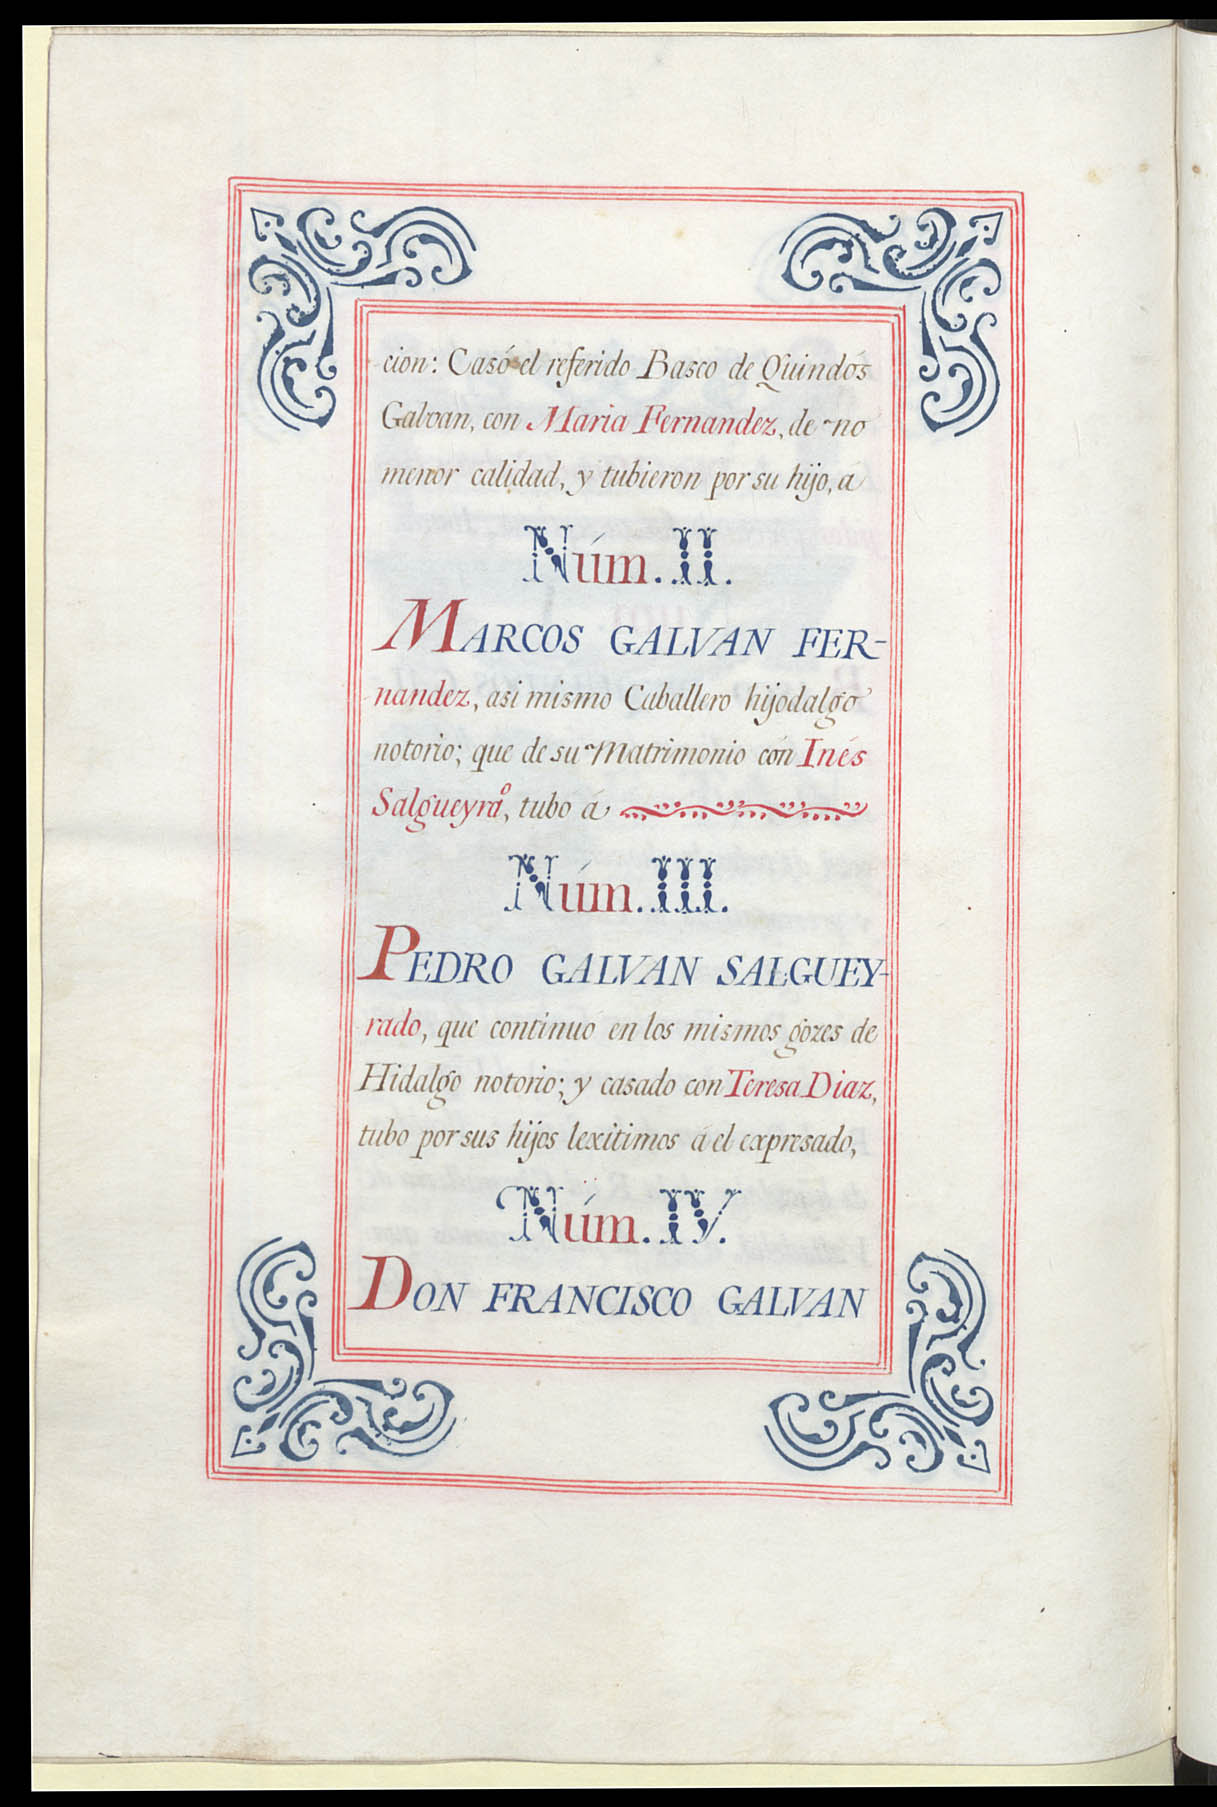 cion: Casó el referido Basco de Quindós
Galvan, con Maria Fernandez, de no
menor calidad, y tubieron por su hijo, á
Núm. II.
MARCOS GALVAN FER-
nandez, asi mismo Caballero hijodalgo
notorio; que de su Matrimonio cón Inés
Salgueyrá⁰, tubo á
Núm. III.
PEDRO GALVAN SALGUEY-
rado, que continuó en los mismos gozes de
Hidalgo notorio; y casado con Teresa Diaz,
tubo por sus hijos lexitimos á el expresado,
Núm. IV.
DON FRANCISCO GALVAN